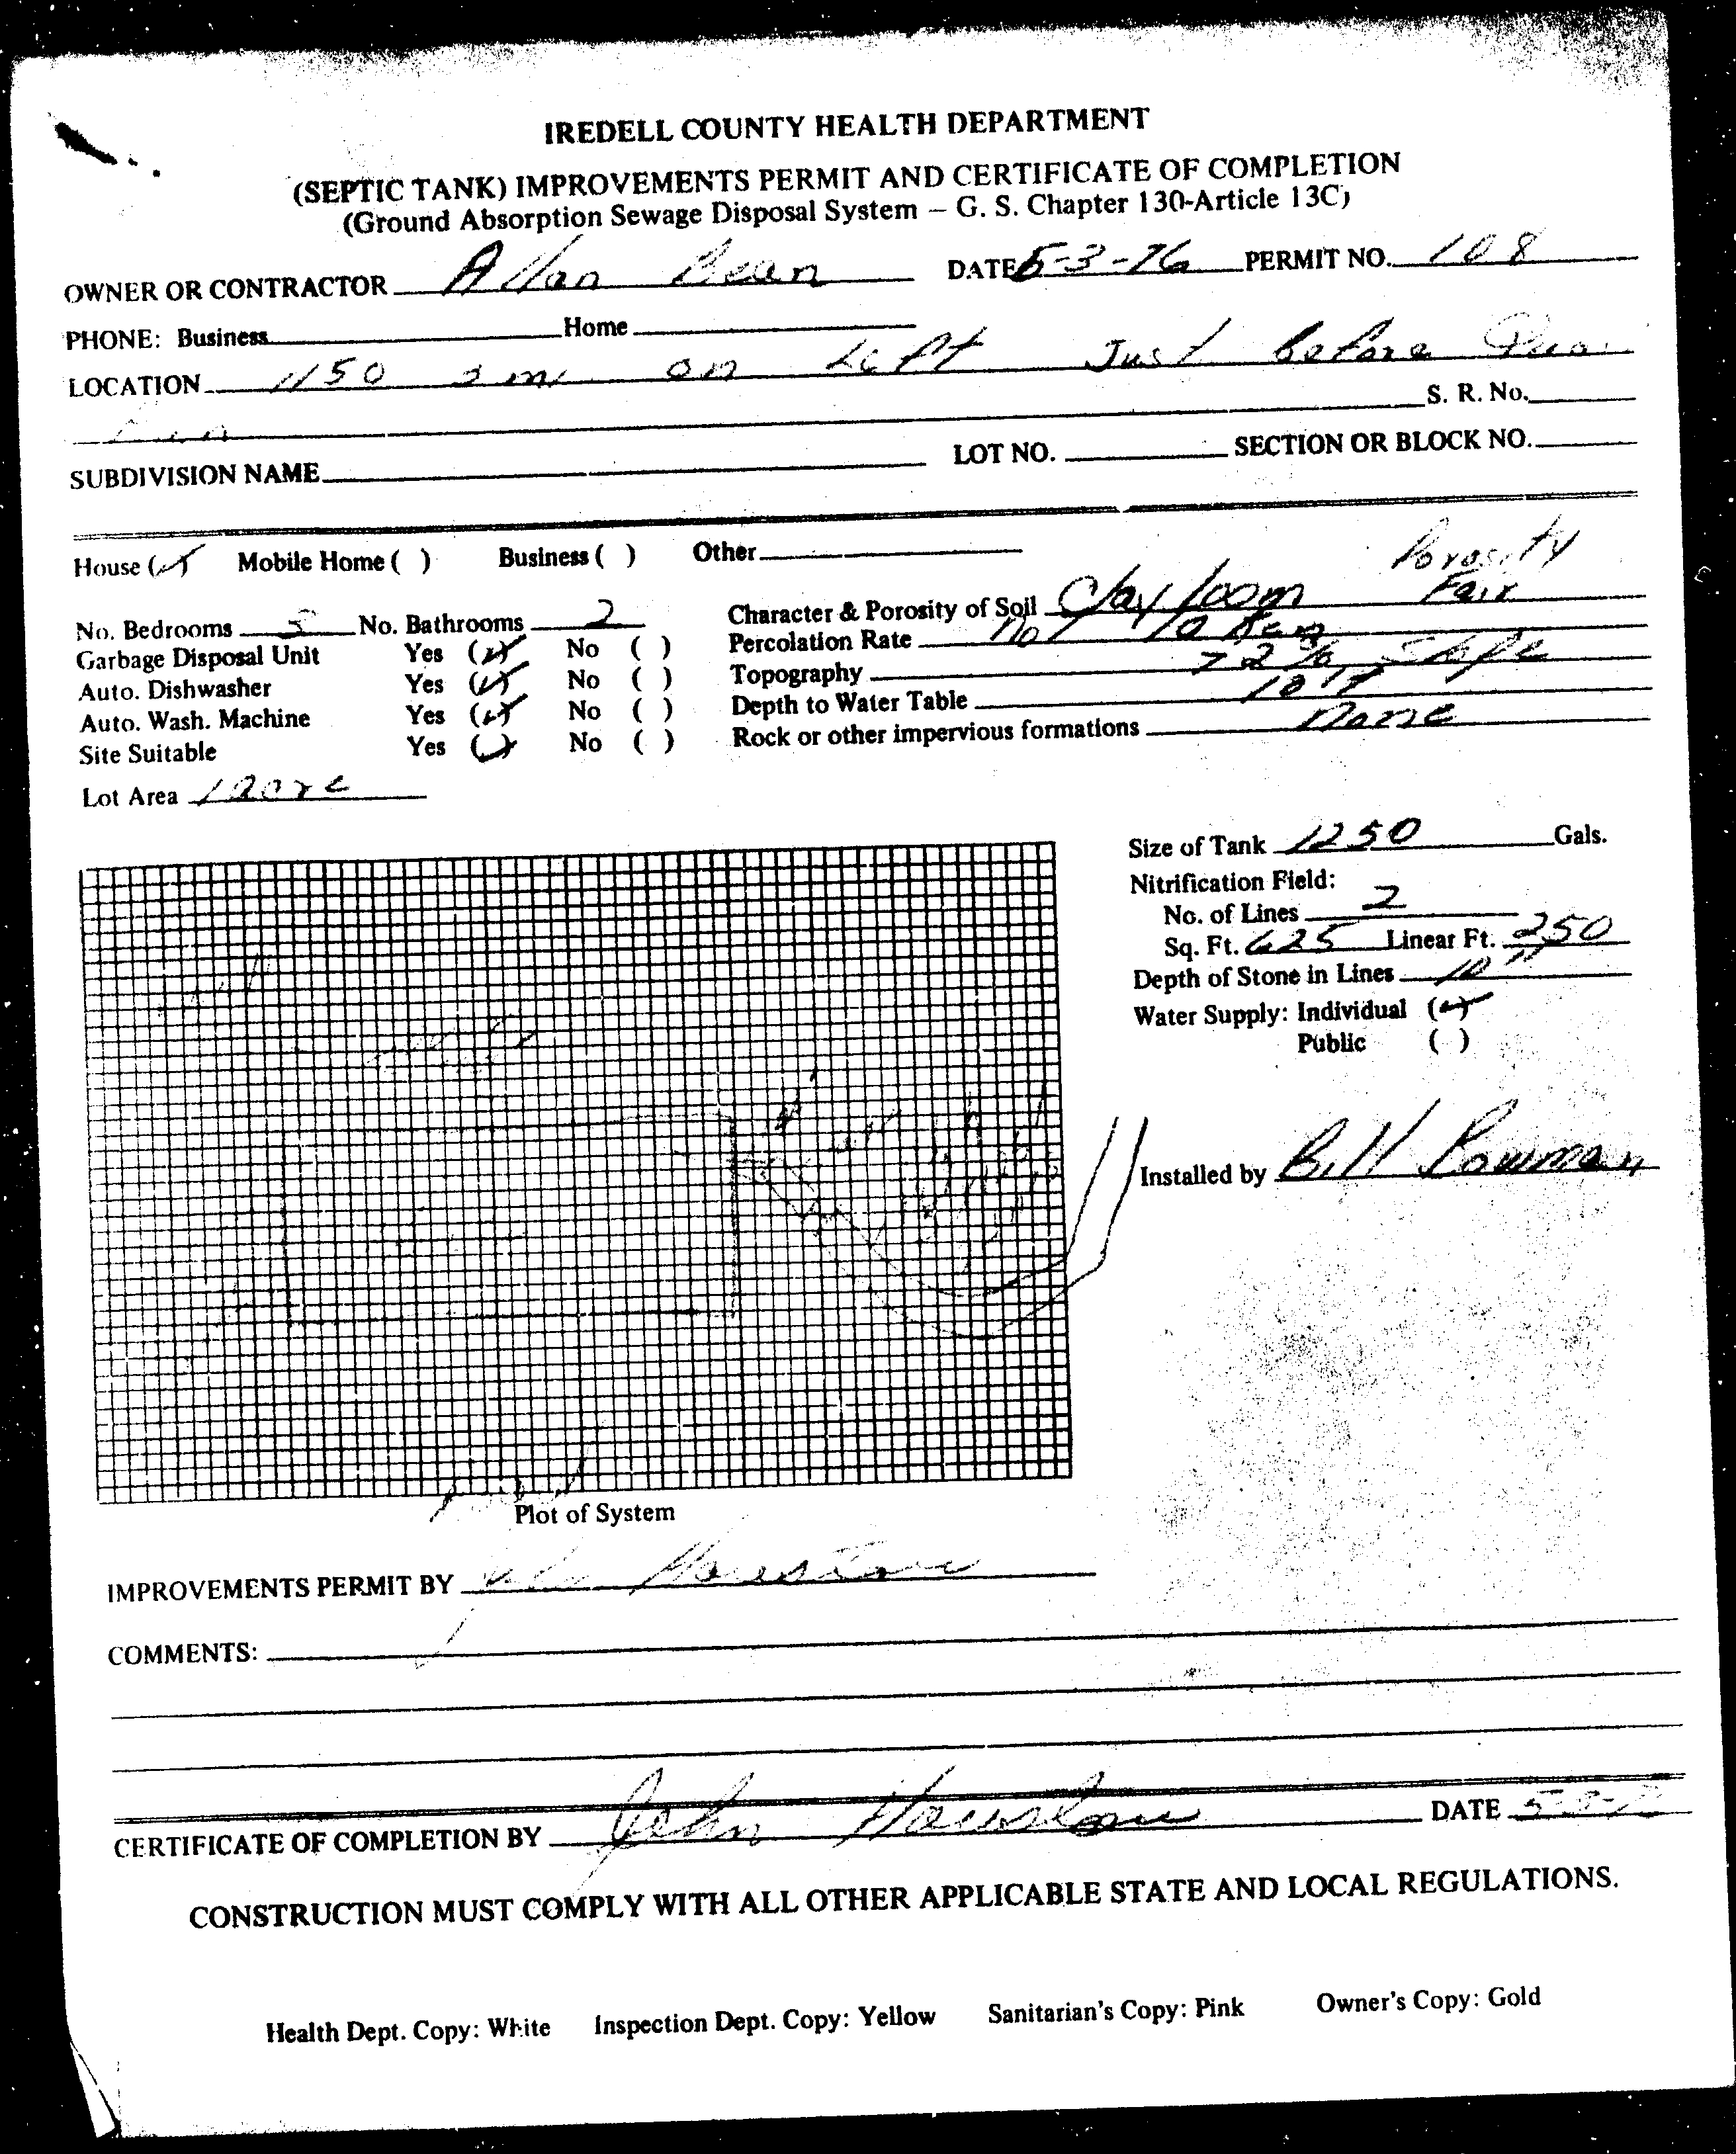 IREDELL COUNTY HEALTH DEPARTMENT
(SEPTIC TANK) IMPROVEMENTS PERMIT AND CERTIFICATE OF COMPLETION
(Ground Absorption Sewage Disposal System – G. S. Chapter 130-Article 13C)
OWNER OR CONTRACTOR Allan Bean DATE 5-3-76 PERMIT NO. 108
PHONE: Business Home
LOCATION 1150 on Left Just before
S. R. No.
SUBDIVISION NAME LOT NO. SECTION OR BLOCK NO.
House ( ) Mobile Home ( ) Business ( ) Other Porosity
Character & Porosity of Soil Clay loom Fair
No. Bedrooms 3 No. Bathrooms 2
Percolation Rate Not Taken
Garbage Disposal Unit Yes ( ) No ( )
Topography 72% Slope
Auto. Dishwasher Yes ( ) No ( )
Depth to Water Table
Auto. Wash. Machine Yes ( ) No ( )
Rock or other impervious formations None
Site Suitable Yes ( ) No ( )
Lot Area 1 acre
Size of Tank 1250 Gals.
Nitrification Field:
No. of Lines 2
Sq. Ft. 625 Linear Ft. 250
Depth of Stone in Lines 10"
Water Supply: Individual ( )
Public ( )
Installed by Bill Bowman
Plot of System
IMPROVEMENTS PERMIT BY John
COMMENTS:
CERTIFICATE OF COMPLETION BY John DATE
CONSTRUCTION MUST COMPLY WITH ALL OTHER APPLICABLE STATE AND LOCAL REGULATIONS.
Health Dept. Copy: White Inspection Dept. Copy: Yellow Sanitarian's Copy: Pink Owner's Copy: Gold